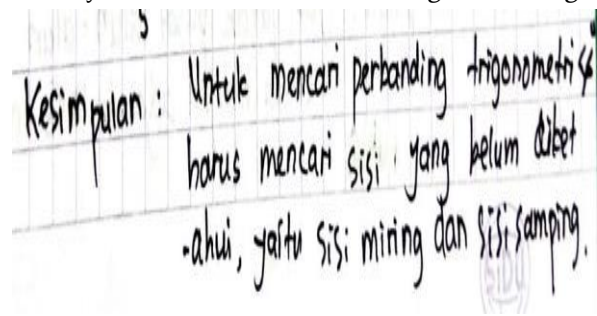 Kesimpulan : Untuk mencari perbanding trigonometri
harus mencari sisi yang belum diket
-ahui, yaitu sisi miring dan sisi samping.
SIDU